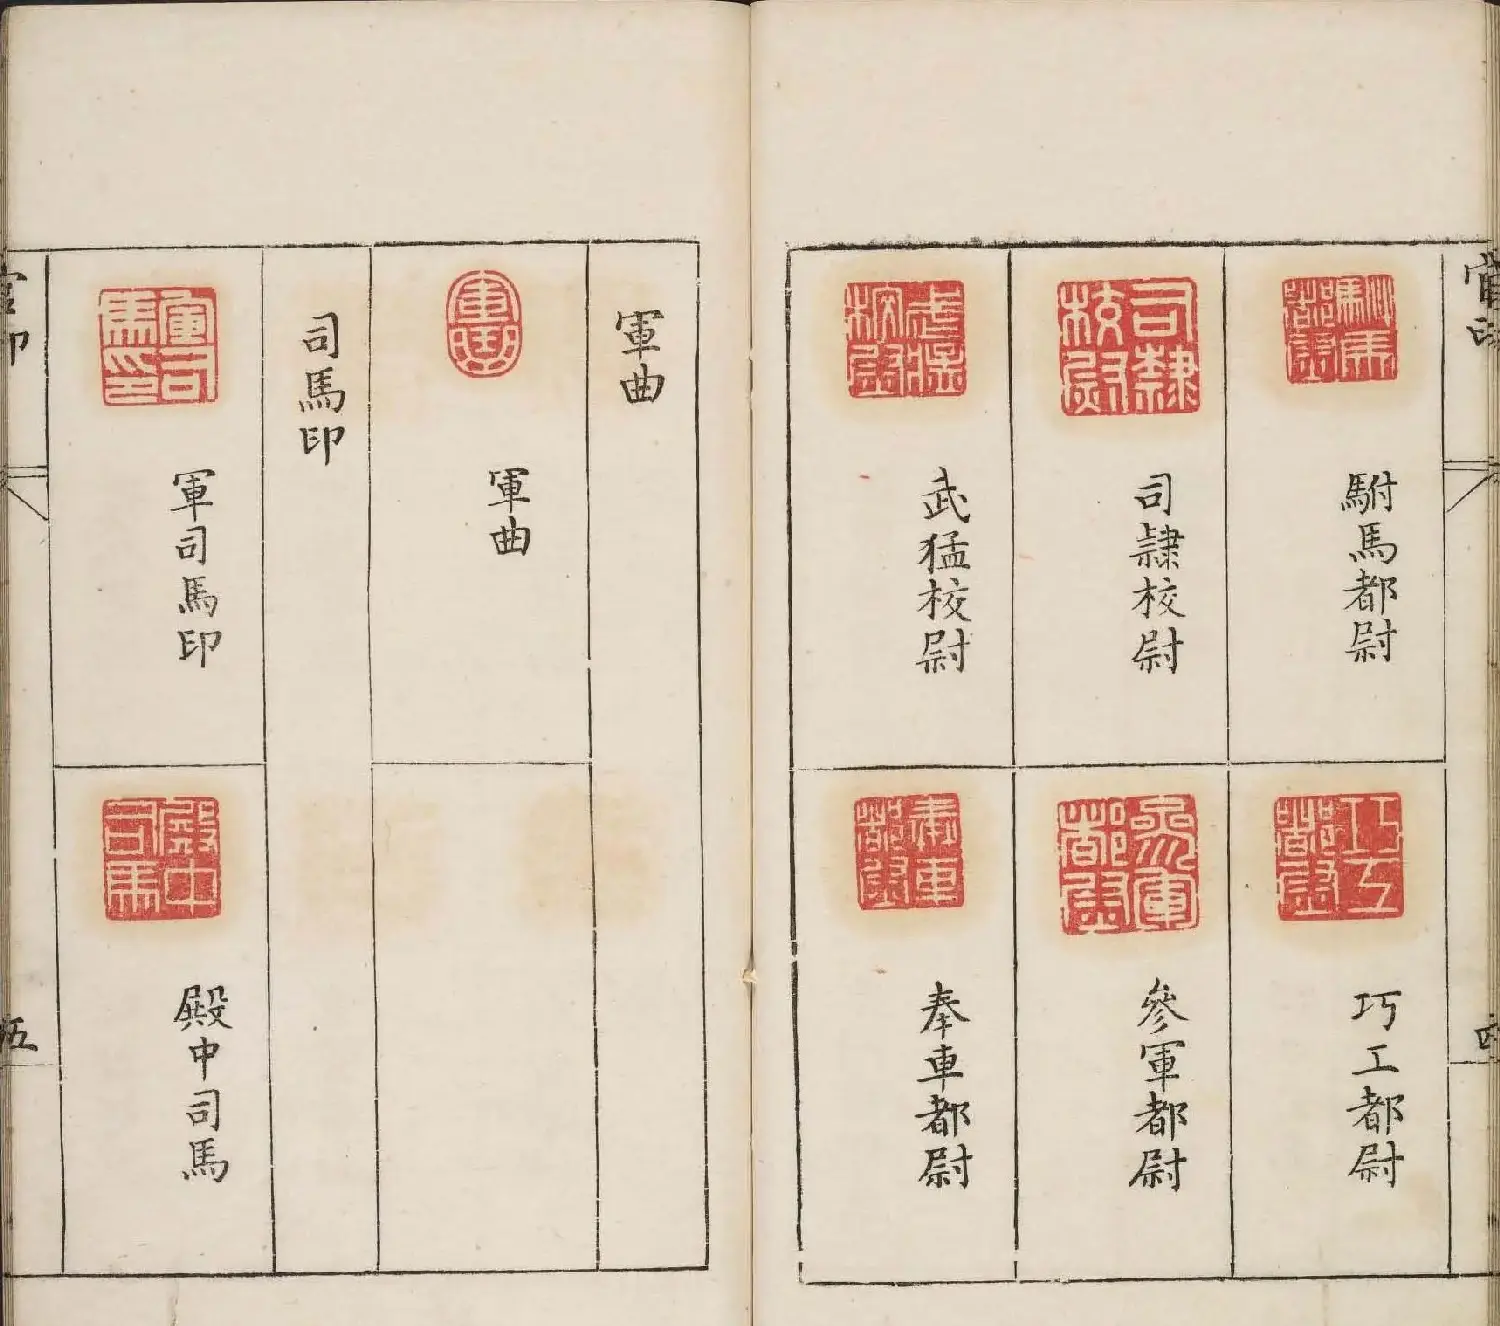 官印
駙馬都尉
巧工都尉
司隸校尉
參軍都尉
武猛校尉
奉車都尉
軍曲
軍曲
司馬印
軍司馬印
殿中司馬
官印
五